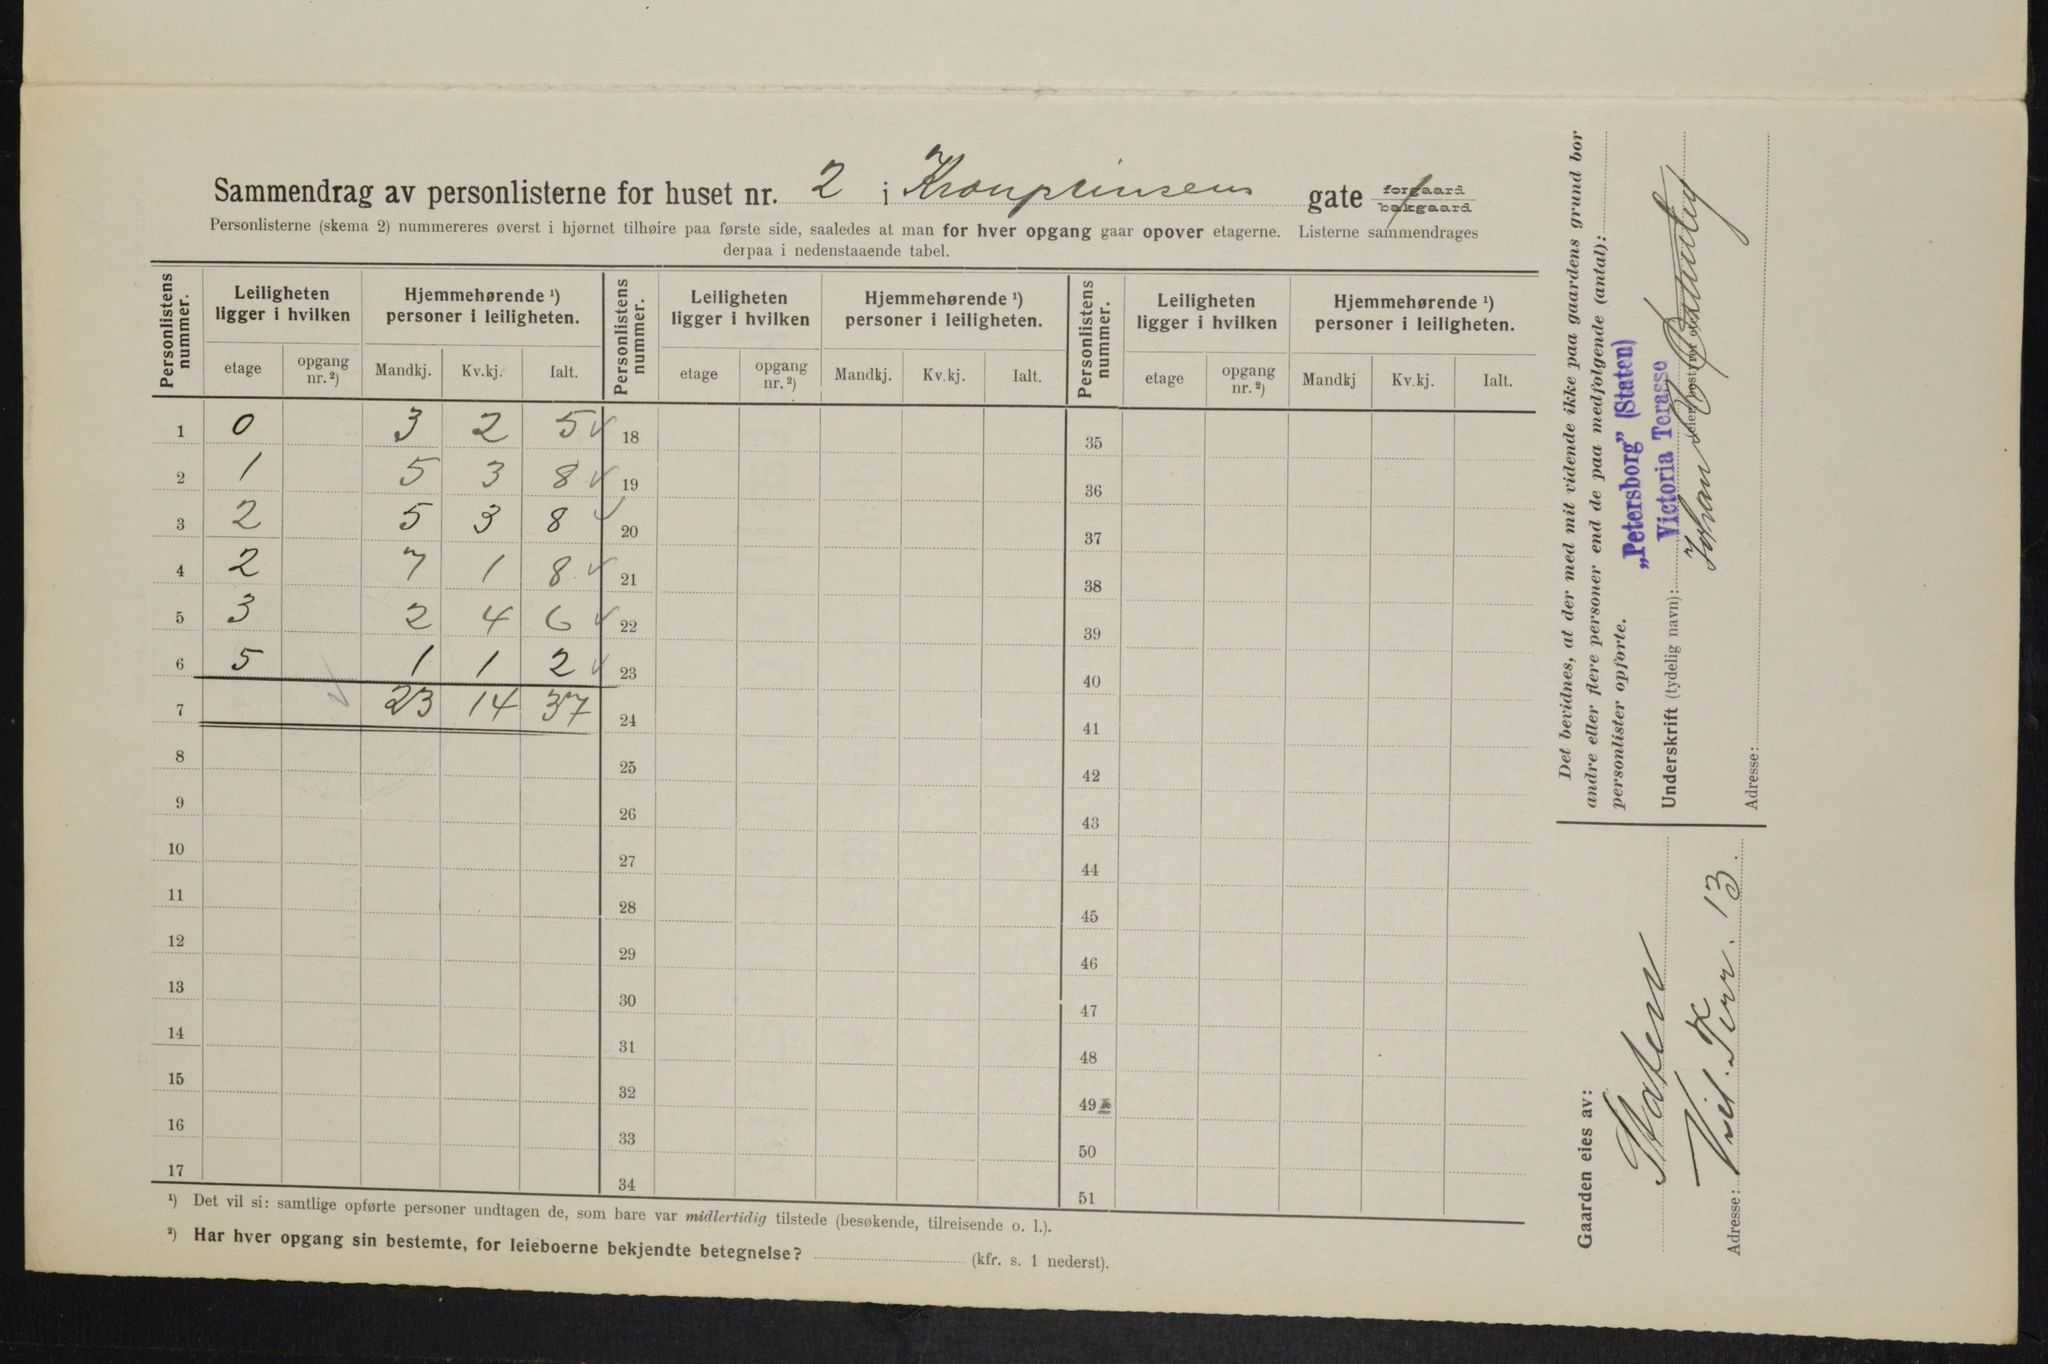 Sammendrag av personlisterne for huset nr. 2 i Kronprinsens gate forgaard bakgaard
Personlisterne (skema 2) nummereres øverst i hjørnet tilhøire paa første side, saaledes at man for hver opgang gaar opover etagerne. Listerne sammendrages
derpaa i nedenstaaende tabel.
Personlistens nummer. Leiligheten ligger i hvilken Hjemmehørende ¹) personer i leiligheten. Personlistens nummer. Leiligheten ligger i hvilken Hjemmehørende ¹) personer i leiligheten. Personlistens nummer. Leiligheten ligger i hvilken Hjemmehørende ¹) personer i leiligheten.
etage opgang nr. ²) Mandkj. Kv.kj. Ialt. etage opgang nr. ²) Mandkj. Kv.kj. Ialt. etage opgang nr. ²) Mandkj Kv.kj. Ialt.
1 0 3 2 5 ✓ 18 35
2 1 5 3 8 ✓ 19 36
3 2 5 3 8 ✓ 20 37
4 2 7 1 8 ✓ 21 38
5 3 2 4 6 ✓ 22 39
6 5 1 1 2 ✓ 23 40
7 ✓ 23 14 37 24 41
8 25 42
9 26 43
10 27 44
11 28 45
12 29 46
13 30 47
14 31 48
15 32 49
16 33 50
17 34 51
¹) Det vil si: samtlige opførte personer undtagen de, som bare var midlertidig tilstede (besøkende, tilreisende o. l.).
²) Har hver opgang sin bestemte, for leieboerne bekjendte betegnelse? (kfr. s. 1 nederst).
Det bevidnes, at der med mit vidende ikke paa gaardens grund bor
andre eller flere personer end de paa medfølgende (antal):
personlister opførte.
„Petersborg" (Staten)
Victoria Terasse
Underskrift (tydelig navn):
Johan
Adresse:
Gaarden eies av:
Staten
Adresse: Vict. Terr. 13.